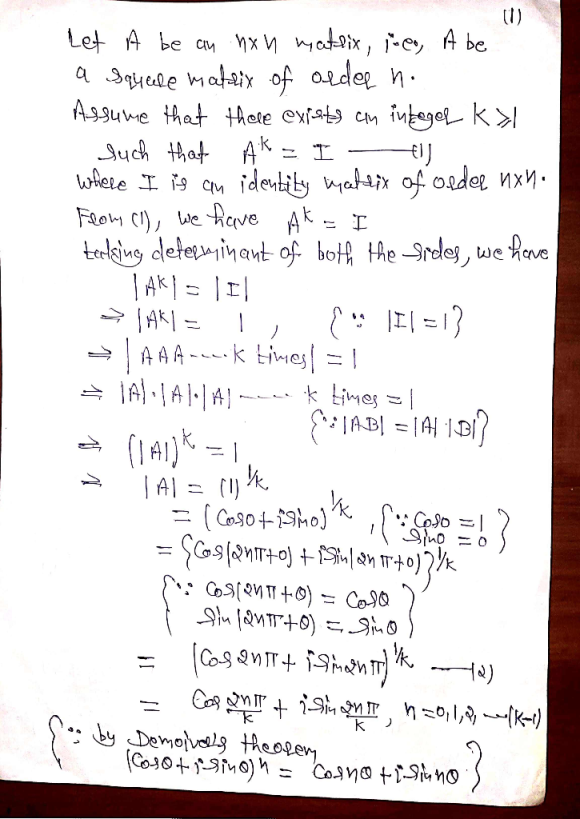 (1)
Let A be an n×n matrix, i.e., A be
a square matrix of order n.
Assume that there exists an integer K≥1
such that A^K = I —(1)
where I is an identity matrix of order n×n.
From (1), we have A^K = I
taking determinant of both the sides, we have
|A^K| = |I|
⇒ |A^K| = 1 , {∵ |I| = 1}
⇒ |AAA----K times| = 1
⇒ |A|·|A|·|A| ---- K times = 1
{∵ |AB| = |A| |B|}
⇒ (|A|)^K = 1
⇒ |A| = (1)^1/K
= (Cos0 + iSin0)^1/K , {∵ Cos0 = 1
Sin0 = 0}
= {Cos(2nπ+0) + iSin(2nπ+0)}^1/K
{∵ Cos(2nπ+θ) = Cosθ
Sin(2nπ+θ) = Sinθ}
= (Cos2nπ + iSin2nπ)^1/K —(2)
= Cos 2nπ/K + iSin 2nπ/K , n=0,1,2, ---(K-1)
{∵ by Demoivre's theorem
(Cosθ + iSinθ)^n = Cosnθ + iSinnθ}